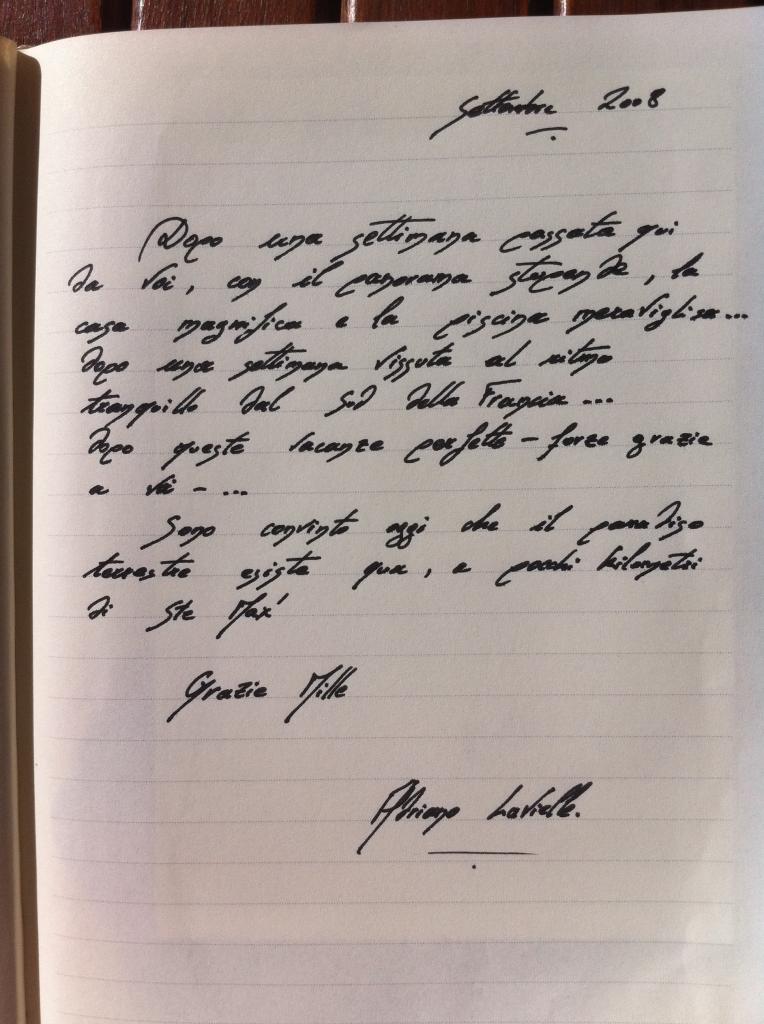 Settembre 2008
Dopo una settimana passata qui
da voi, con il panorama stupendo, la
casa magnifica e la piscina meravigliosa...
dopo una settimana vissuta al ritmo
tranquillo del Sud della Francia...
dopo queste vacanze perfette - forze grazie
a voi - ...
Sono convinto oggi che il paradiso
terrestre esiste qua, a pochi kilometri
di Ste Max'
Grazie Mille
Adriano Lavielle.